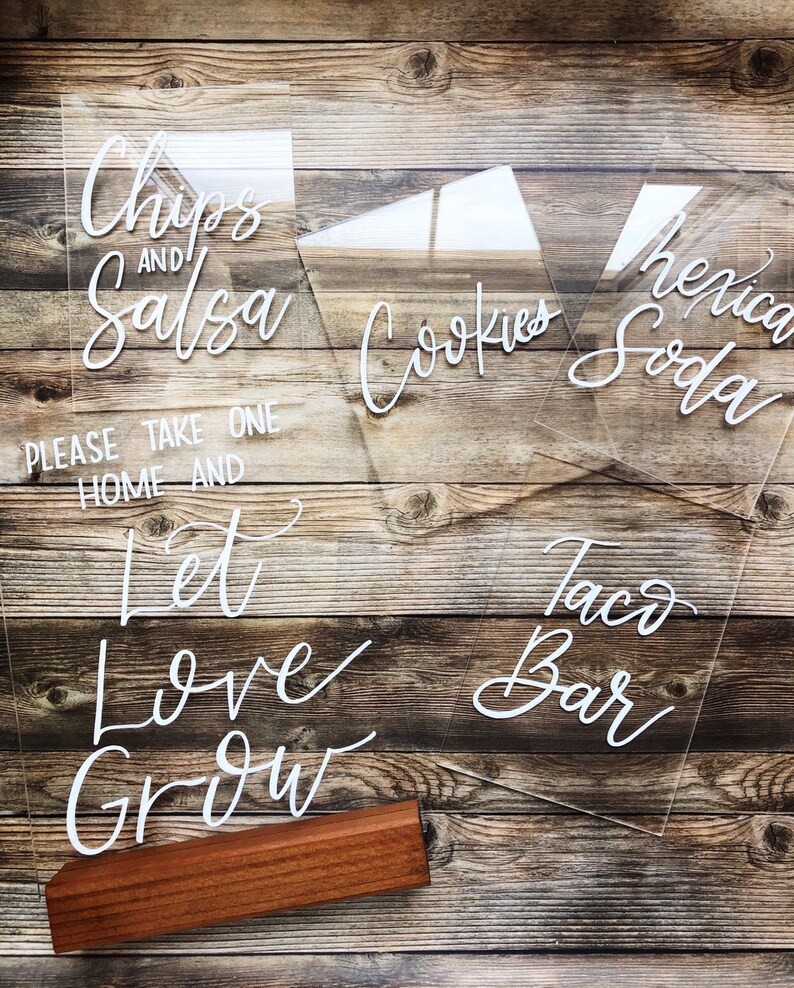 Chips
AND
Salsa
Cookies
Mexica
Soda
PLEASE TAKE ONE
HOME AND
Let
Love
Grow
Taco
Bar